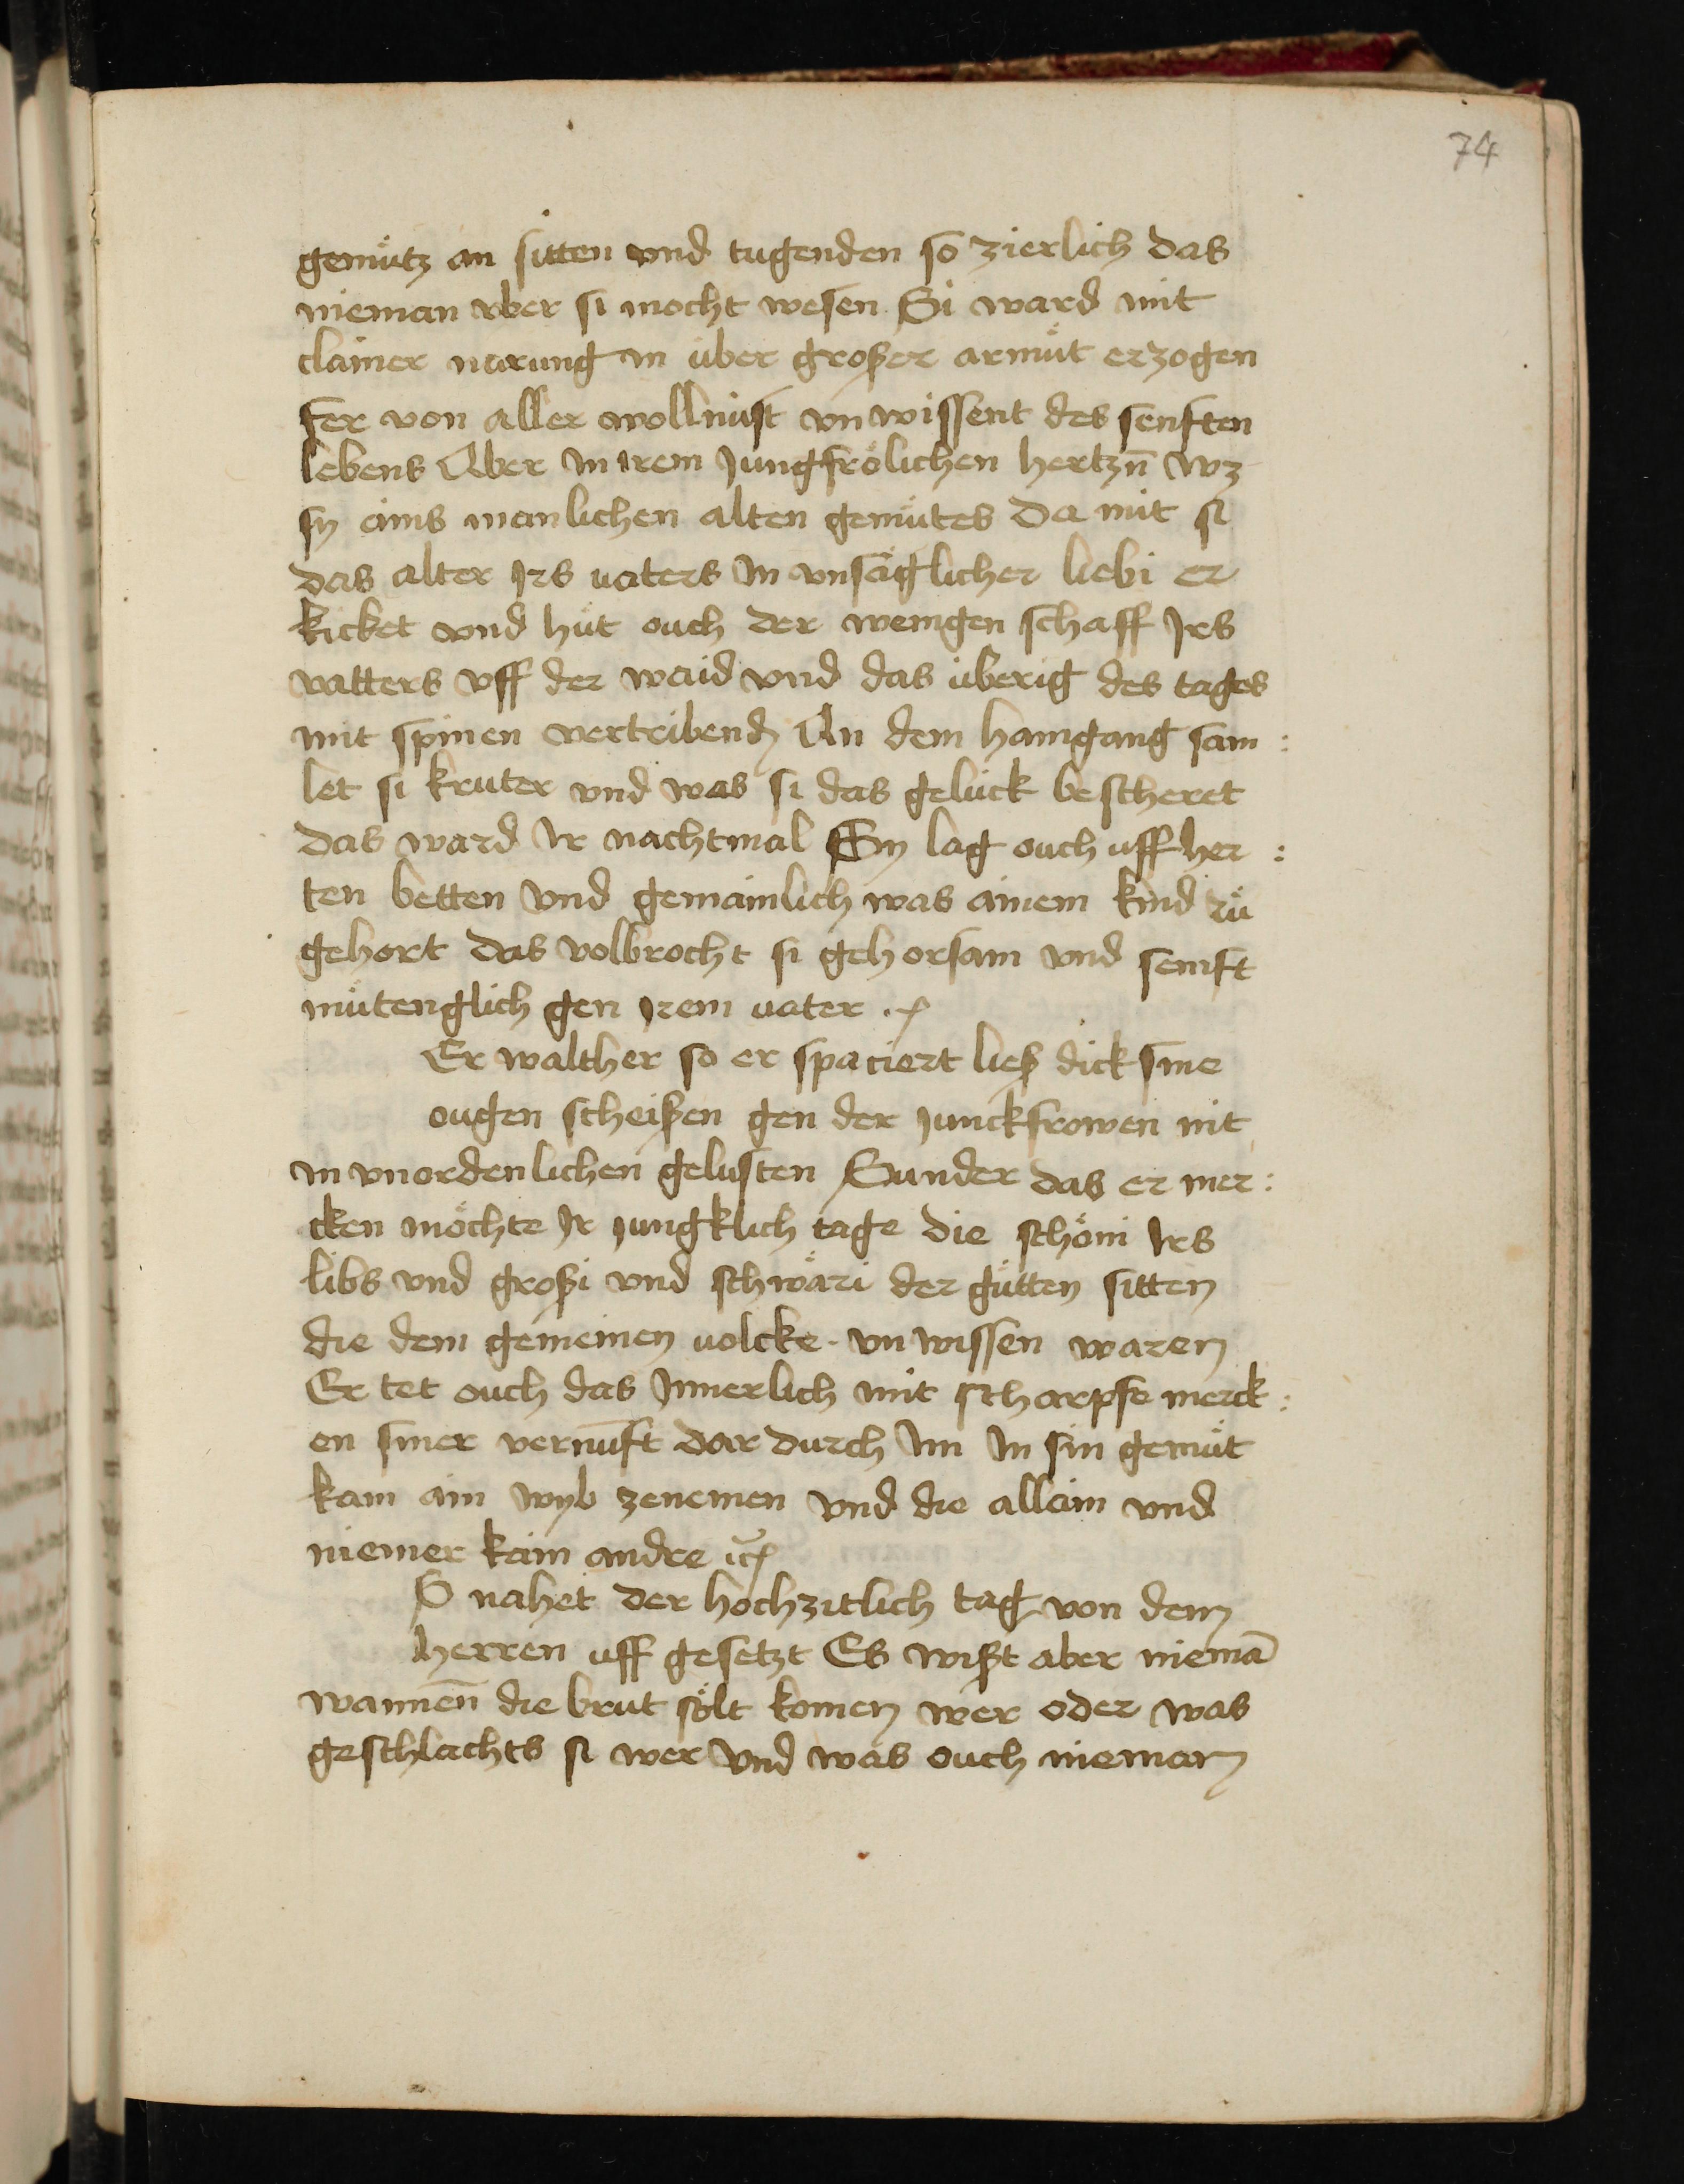 74
gemuͤtz an sitten vnd tugenden so zierlich das
nieman vber si mocht wesen Si ward mit
clainer narung in uͤber großer armuͤt erzogen
fer von aller wollnust vnwissent des senften
lebens Aber in irem Jungfroͤlichen hertzn̄ wz
sy ains manlichen alten gemuͤtes Da mit si
das alter Jrs uaters Jn vnsaͤglicher liebi er
kicket vnd huͤt ouch der wenigen schaff Jrs
vatters vff der waid vnd das uͤberig des tages
mit spinen vertribend An dem haingang sam :
let si kruter vnd was si das geluͤck bescheret
das ward Jr nachtmal Sy lag ouch uff her :
ten betten vnd gemainlich was ainem kind zuͤ
gehort das volbrocht si gehorsam vnd semft
muͤtenglich gen Jrem uater
Er walther so er spaciert ließ dick sine
ougen scheißen gen der Junckfrowen nit
in vnordenlichen gelusten Sunder das er mer :
cken moͤchte Jr Jungklich tage die schoͤni Jrs
libs vnd großi vnd schwaͤri der guͤtten sitten
die dem gemeinen uolcke vnwissen waren
Er tet ouch das Jnnerlich mit scharpfe merck :
en siner vernuft dar durch Jm Jn sin gemuͤt
kam ain wyb zenemen vnd die allain vnd
niemer kain andre ꝛc
O nahet der hochzitlich tag von dem
herren uff gesetzt Es wißt aber niemā
wannen̄ die brut soͤlt komen wer oder was
geschlachts si wer vnd was ouch nieman